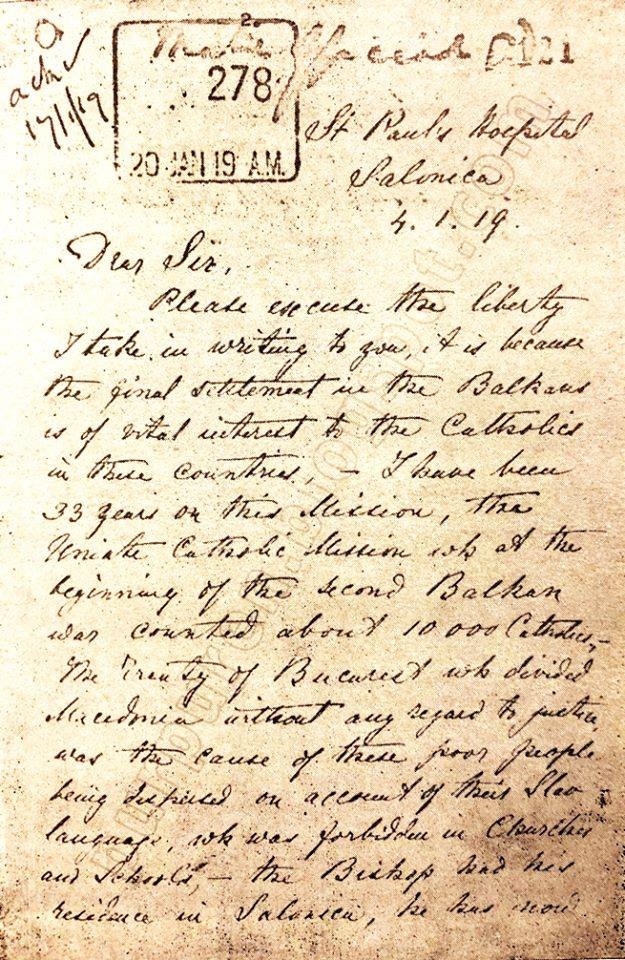 2.
278
20 JAN 19 A.M.
17/1/19
St Paul's Hospital
Salonica
4. 1. 19.
Dear Sir,
Please excuse the liberty
I take in writing to you, it is because
the final settlement in the Balkans
is of vital interest to the Catholics
in these countries, – I have been
33 years on this Mission, the
Uniate Catholic Mission wh at the
beginning of the second Balkan
war counted about 10 000 Catholics, –
The Treaty of Bucarest wh divided
Macedonia without any regard to justice,
was the cause of these poor people
being dispersed on account of their Slav
language, wh was forbidden in Churches
and Schools, – the Bishop had his
residence in Salonica, he has now